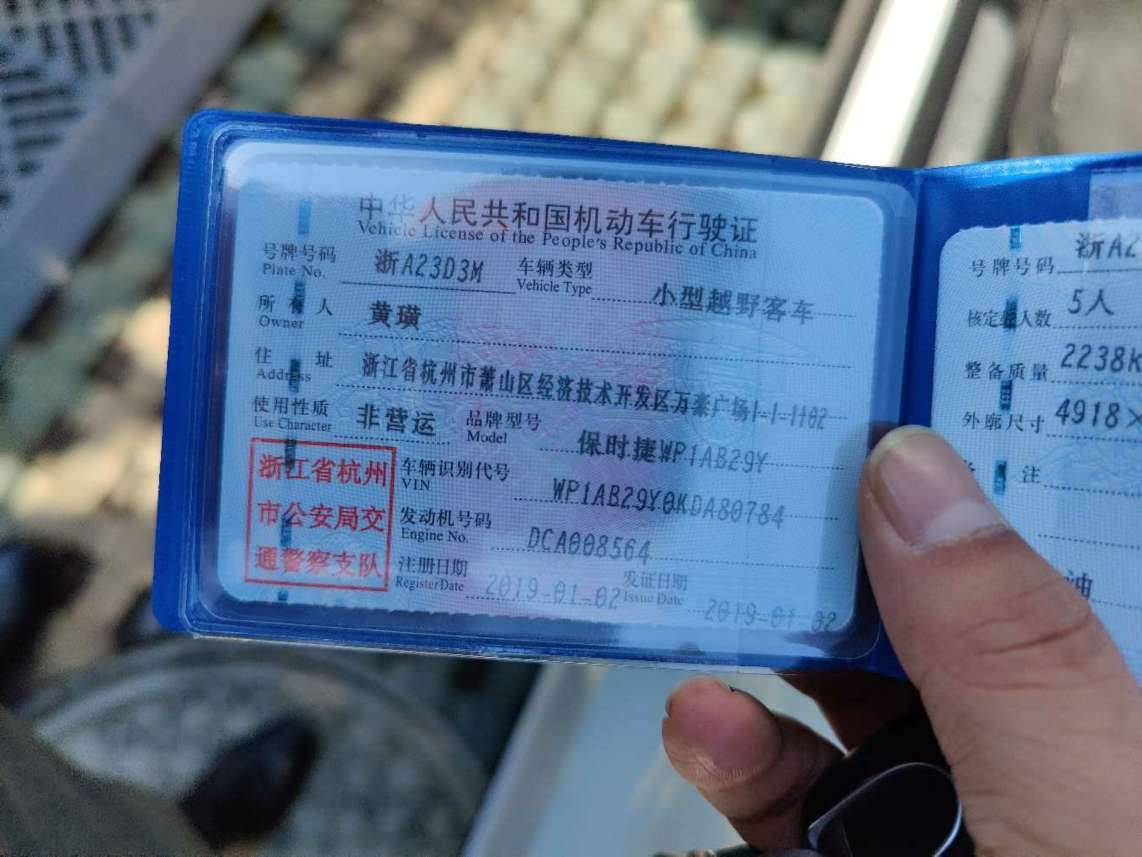 中华人民共和国机动车行驶证
Vehicle License of the People's Republic of China
号牌号码 浙A23D3M 车辆类型 小型越野客车
Plate No. Vehicle Type
所有人 黄璜
Owner
住址 浙江省杭州市萧山区经济技术开发区万豪广场1-1-1102
Address
使用性质 非营运 品牌型号 保时捷WP1AB29Y
Use Character Model
浙江省杭州
市公安局交
通警察支队
车辆识别代号 WP1AB29Y0KDA80784
VIN
发动机号码 DCA008564
Engine No.
注册日期 2019-01-02 发证日期 2019-01-02
Register Date Issue Date
号牌号码 浙A2
核定载人数 5人
整备质量 2238K
外廓尺寸 4918×
备注
油